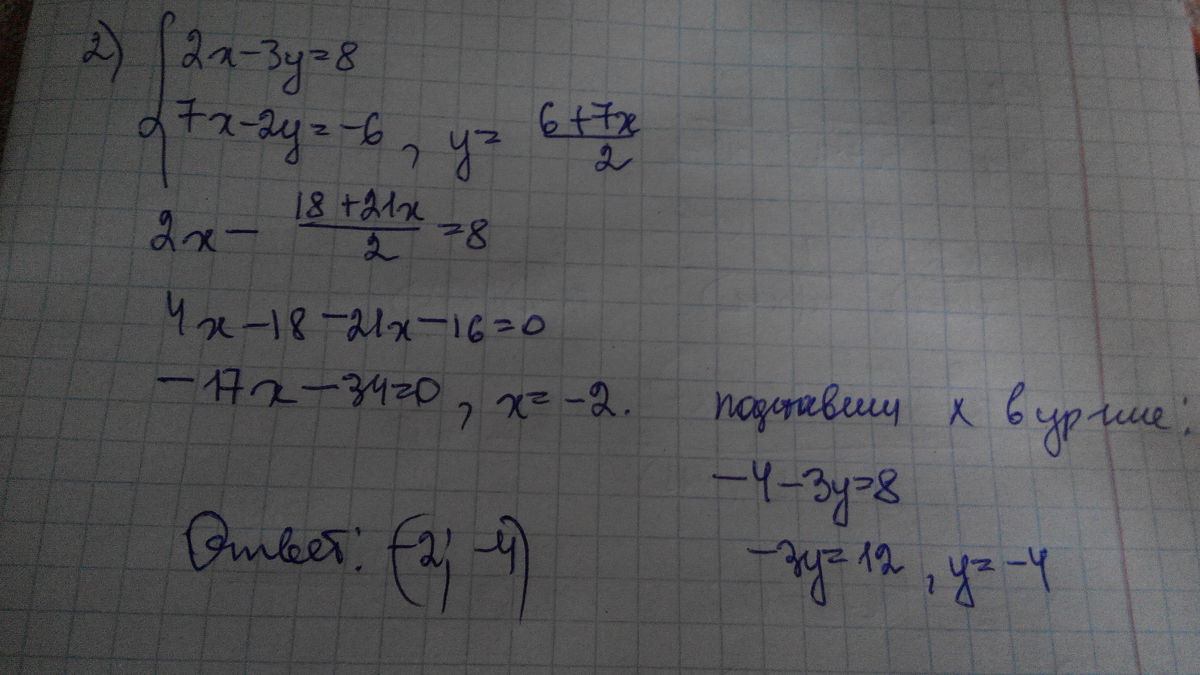 2) { 2x-3y=8
7x-2y=-6, y= (6+7x)/2
2x- (18+21x)/2 =8
4x-18-21x-16=0
-17x-34=0, x=-2.
подставим x в ур-ние:
-4-3y=8
-3y=12, y=-4
Ответ: (-2; -4)